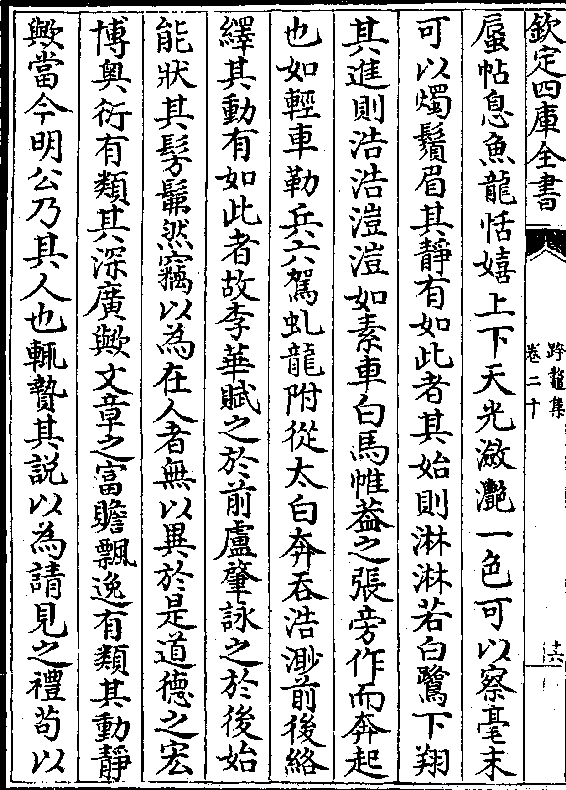 欽定四庫全書
跨鼇集
卷二十
蜃帖息魚龍恬嬉上下天光瀲灧一色可以察毫末
可以燭鬚眉其靜有如此者其始則淋淋若白鷺下翔
其進則浩浩溰溰如素車白馬帷葢之張旁作而奔起
也如輕車勒兵六駕虬龍附從太白奔吞浩渺前後絡
繹其動有如此者故李華賦之於前盧肇詠之於後始
能狀其髣髴然竊以為在人者無以異於是道德之宏
博奥衍有類其深廣歟文章之富贍飄逸有類其動靜
歟當今明公乃其人也輒贄其説以為請見之禮苟以